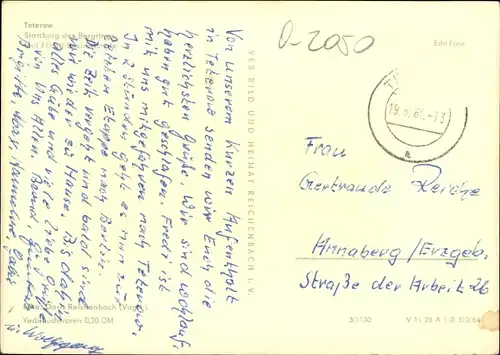 Teterow
Startburg des Bergrings
O-2050
Echt Foto
Von unserem kurzen Aufenthalt
in Teterow senden wir Euch die
herzlichsten Grüße. Wir sind wohlauf,
haben gut geschlafen. Fredi ist
mit uns mitgefahren nach Teterow.
In 2 Stunden geht es nun zur
Etappe nach Berlin.
Die Zeit vergeht und bald sind
wir wieder zu Hause. Bis dahin
alles Gute und viele liebe Grüße
von Uns Allen.
Brigitte,
u. Wolfgang
VEB BILD UND HEIMAT REICHENBACH i. V.
19.
-13
a
Frau
Gertraude Reiche
Annaberg/Erzgeb.
Straße der Arbeit 26
Foto: Darr, Reichenbach (Vogtl.)
Verbraucherpreis 0,20 DM
3/1130
V 11 28 A 1/B 313/64